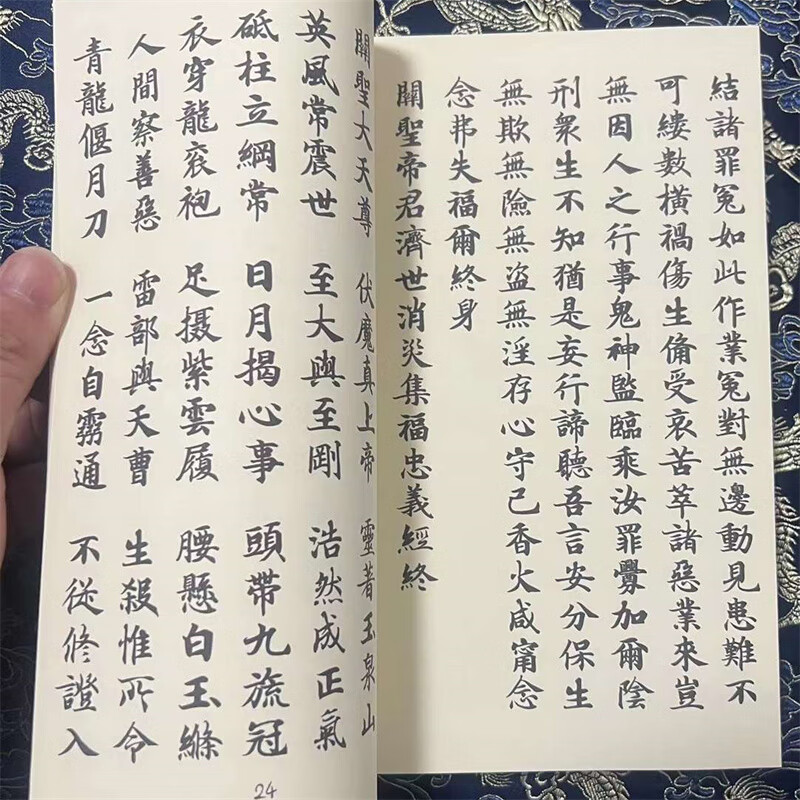 結諸罪冤如此作業冤對無邊動見患難不
可縷數橫禍傷生備受哀苦萃諸惡業來豈
無因人之行事鬼神監臨乘汝罪釁加爾陰
刑衆生不知猶是妄行諦聽吾言安分保生
無欺無險無盜無淫存心守己香火咸甯念
念弗失福爾終身
關聖帝君濟世消災集福忠義經終
關聖大天尊 伏魔真上帝 靈著玉泉山
英風常震世 至大與至剛 浩然成正氣
砥柱立綱常 日月揭心事 頭帶九旒冠
衣穿龍袞袍 足摄紫雲履 腰懸白玉絛
人間察善惡 雷部與天曹 生殺惟所令
青龍偃月刀 一念自霧通 不從修證入
24